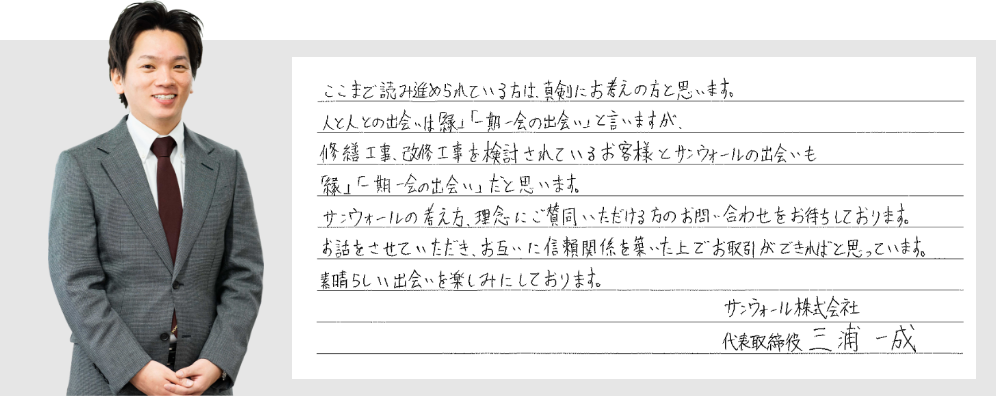 ここまで読み進められている方は、真剣にお考えの方と思います。
人と人との出会いは「縁」「一期一会の出会い」と言いますが、
修繕工事、改修工事を検討されているお客様とサンウォールの出会いも
「縁」「一期一会の出会い」だと思います。
サンウォールの考え方、理念にご賛同いただける方のお問い合わせをお待ちしております。
お話をさせていただき、お互いに信頼関係を築いた上でお取引ができればと思っています。
素晴らしい出会いを楽しみにしております。
サンウォール株式会社
代表取締役 三浦 一成